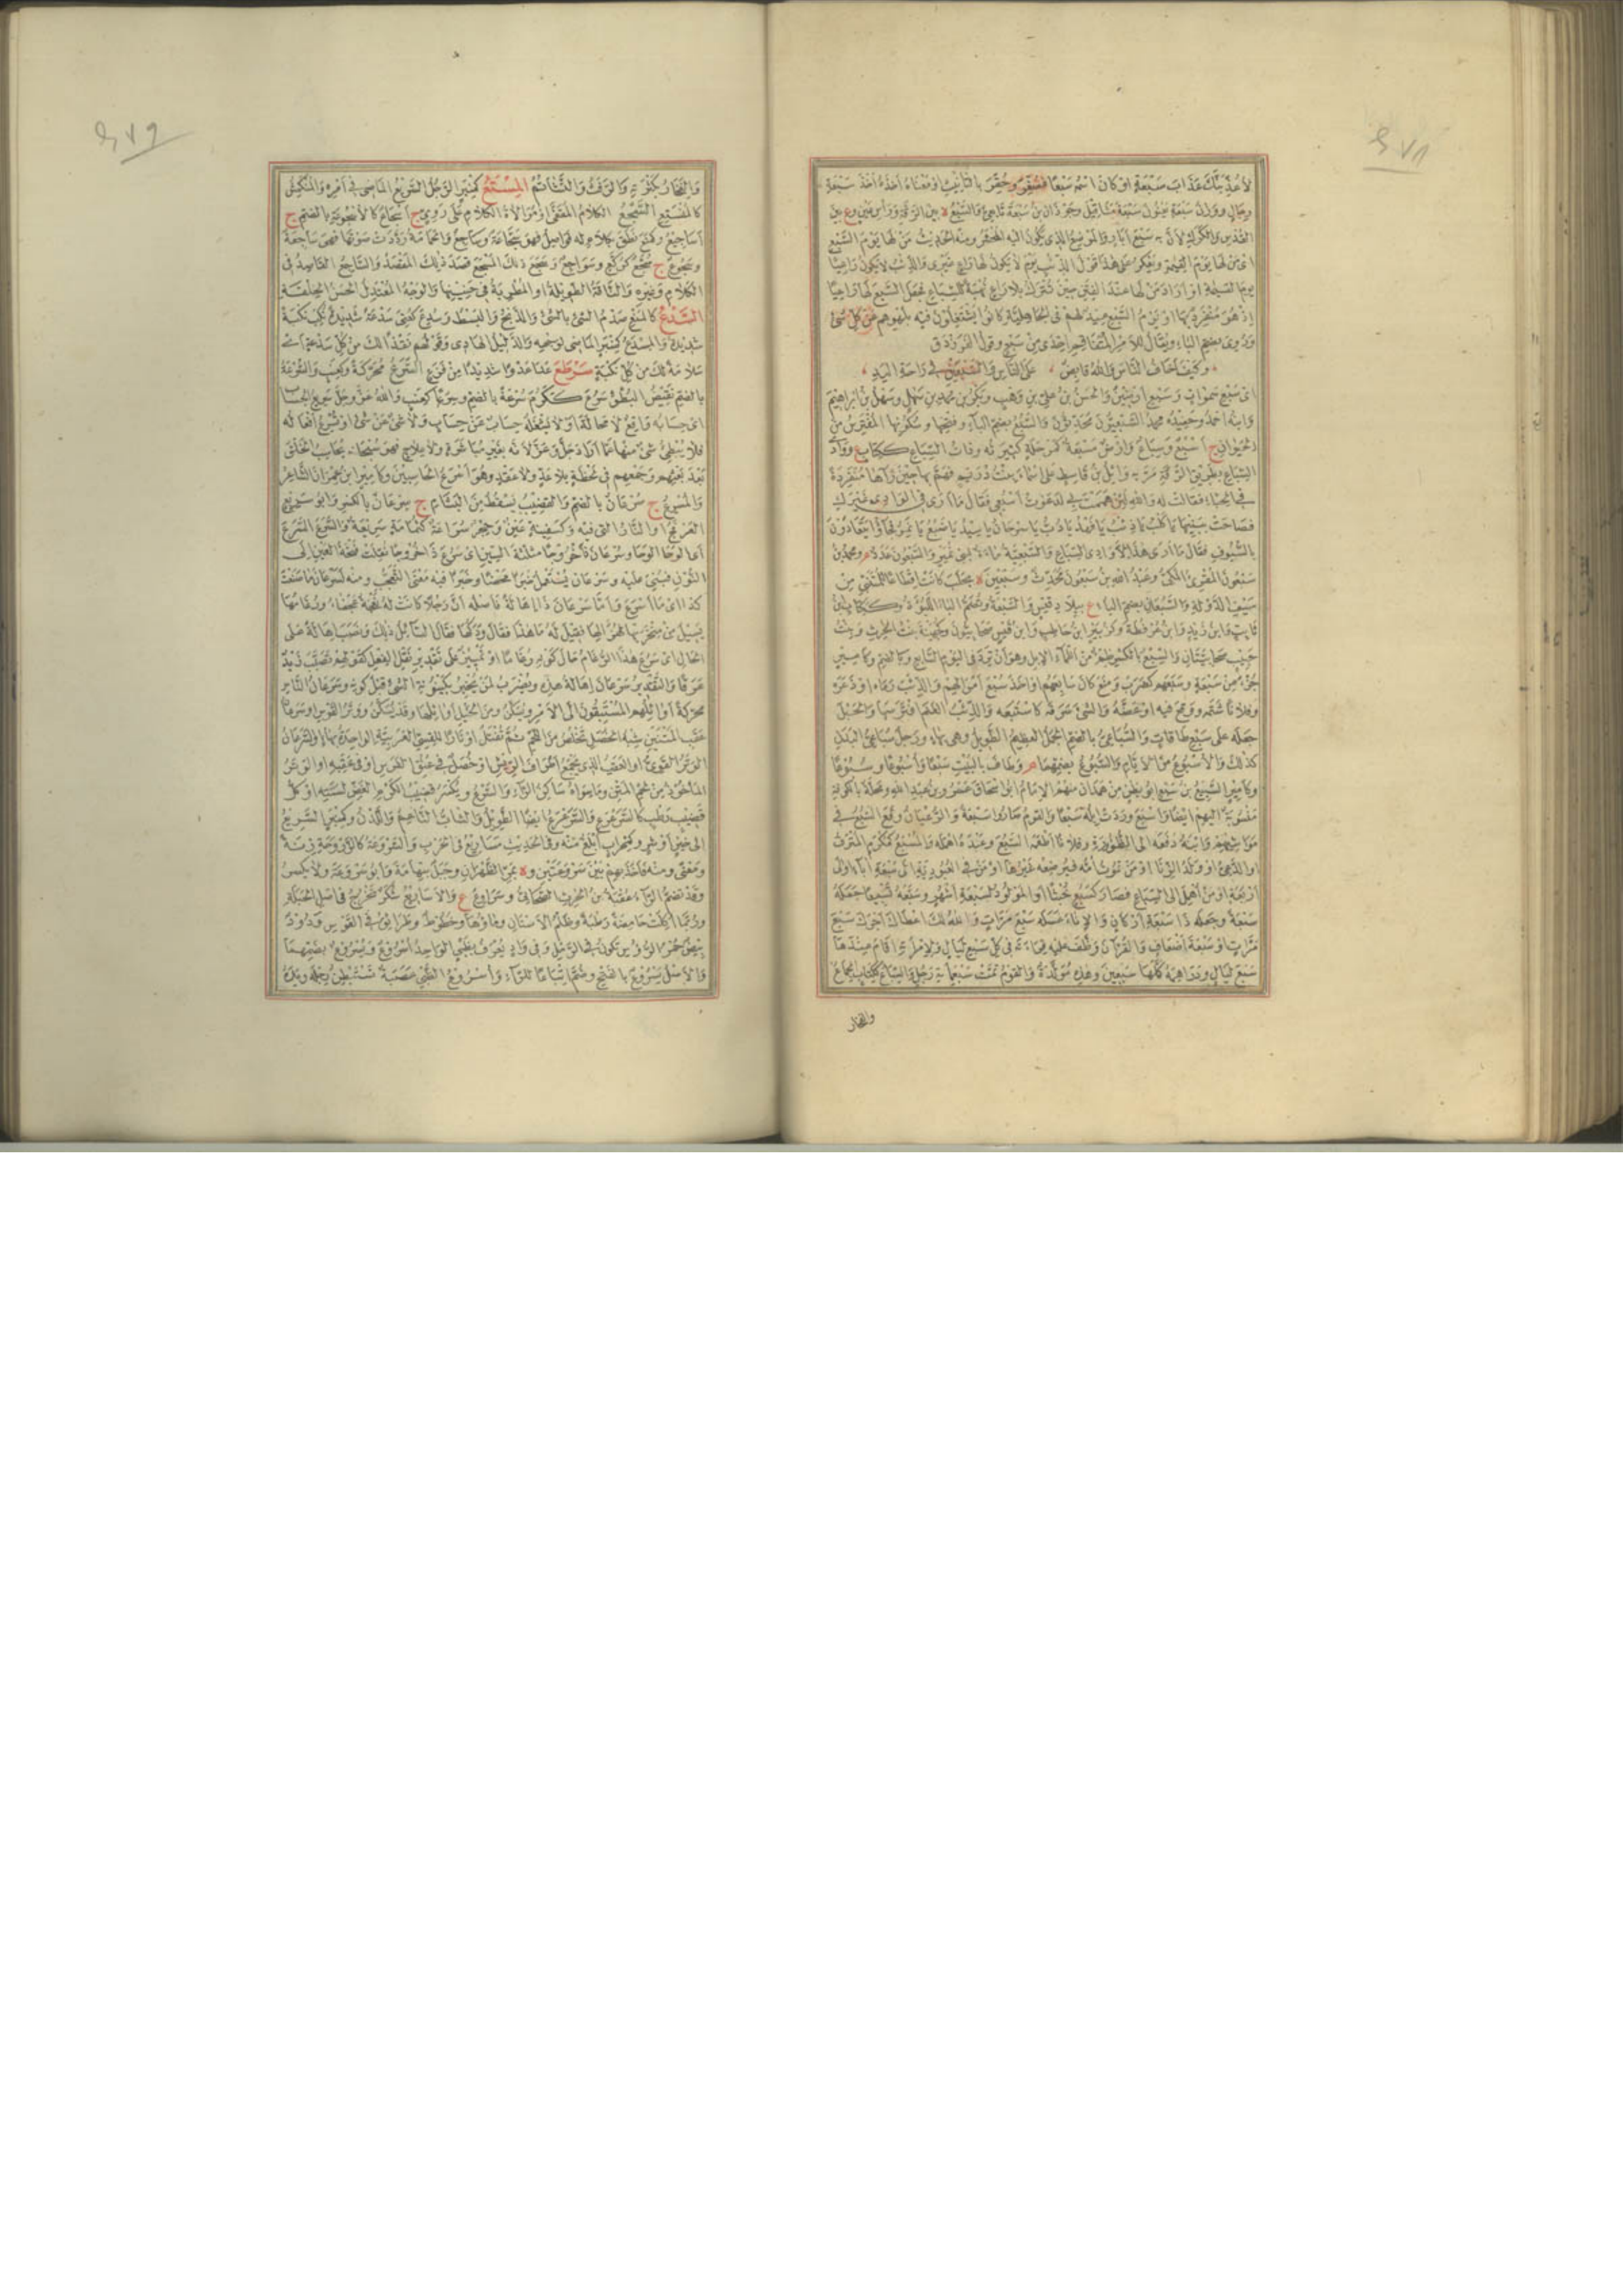 ٤٧٨
لأعذبنك عذاب سبعة أو كان اسم سبعا فصغر وحقر بالتأنيث أو معناه أخذه أخذ سبعة
رجال ووزن سبعة يعنون سبعة مثاقيل وجوذان بن سبعة تابعي والسبع ة بين الرقة ورأس عين وع بين
القدس والكرك لأن به سبع آبار والموضع الذي يكون إليه المحشر ومنه الحديث من لها يوم السبع
أي من لها يوم القيمة ويعكر على هذا قول الذئب يوم لا يكون لها راع غيري والذئب لا يكون راعيا
يوم القيمة أو أراد من لها عند الفتن حين تترك بلا راع نهبة للسباع فجعل السبع لها راعيا
إذ هو منفرد بها أو يوم السبع عيد لهم في الجاهلية كانوا يشتغلون فيه بلهوهم عن كل شئ
وروي بضم الباء ويقال للأمر المتفاقم إحدى من سبع وقول الفرزدق
وكيف أخاف الناس والله قابض على الناس والسبعين في راحة اليد
أي سبع سموات وسبع أرضين والحسن بن علي بن وهب وبكر بن محمد بن سهل وسهل بن ابراهيم
وابنه أحمد وحفيده محمد السبعيون محدثون والسبع بضم الباء وفتحها وسكونها المفترس من
الحيوان ج أسبع وسباع وأرض مسبعة كمرحلة كثيرته وذات السباع ككتاب ع ووادي
السباع بطريق الرقة مر به وائل بن قاسط على أسماء بنت دريم فهم بها حين رآها منفردة
في الخباء فقالت له والله لئن هممت بي لدعوت أسبعي فقال ما أرى في الوادي غيرك
فصاحت ببنيها يا كلب يا ذئب يا فهد يا دب يا سرحان يا سيد يا ضبع يا نمر فجاؤا يتعادون
بالسيوف فقال ما أرى هذا إلا وادي السباع والسبعية ماءة لبني نمير والسبعون عدد م ومحمد بن
سبعون المقرئ المكي وعبد الله بن سبعون محدث وسبعين ة بحلب كانت إقطاعا للمتنبي من
سيف الدولة والسبعان بضم الباء ع ببلاد قيس والسبعة وتضم الباء اللبؤة وككتاب ابن
ثابت وابن زيد وابن عرفطة وكزبير ابن حاطب وابن قيس صحابيون وكجهينة بنت الحرث وبنت
حبيب صحابيتان والسبع بالكسر ظمء من أظماء الإبل وهو أن ترد في اليوم السابع وبالضم وكأمير
جزء من سبعة وسبعهم كضرب ومنع كان سابعهم أو أخذ سبع أموالهم والذئب رماه أو ذعره
وفلانا شتمه ووقع فيه أو عضه والشئ سرقه كاستبعه والذئب الغنم افترسها والحبل
جعله على سبع طاقات والسباعي بالضم الجمل العظيم الطويل وهي بهاء ورجل سباعي البدن
كذلك والأسبوع من الأيام والسبوع بضمهما م وطاف بالبيت سبعا وأسبوعا وسبوعا
وكأمير السبيع بن سبع أبو بطن من همدان منهم الإمام أبو إسحاق عمرو بن عبد الله ومحلة بالكوفة
منسوبة إليهم أيضا وأسبع وردت إبله سبعا والقوم صاروا سبعة والرعيان وقع السبع في
مواشيهم وابنه دفعه إلى الظؤورة وفلانا أطعمه السبع وعبده أهمله والمسبع كمكرم المترف
أو الدعي أو ولد الزنا أو من تموت أمه فيرضعه غيرها أو من في العبودية إلى سبعة آباء أو إلى
أربعة أو من أهمل إلى السباع فصار كسبع خبثا أو المولود لسبعة أشهر وسبعه تسبيعا جعله
سبعة وجعله ذا سبعة أركان والإناء غسله سبع مرات والله لك أعطاك أجرك سبع
مرات أو سبعة أضعاف والقرآن وظف عليه قراءته في كل سبع ليال ولامرأته أقام عندها
سبع ليال ودراهمه كملها سبعين وهذه مولدة والقوم تمت سبعمائة رجل والسباع ككتاب الجماع
والفخار
٤٧٩
والفخار بكثرته والرفث والتشاتم المستع كمنبر الرجل السريع الماضي في أمره والمنكمش
كالمنستع السجع الكلام المقفى أو موالاة الكلام على روي ج أسجاع كالأسجوعة بالضم ج
أساجيع وكمنع نطق بكلام له فواصل فهو سجاعة وساجع والحمامة رددت صوتها فهي ساجعة
وسجوع ج سجع كركع وسواجع وسجع ذلك المسجع قصد ذلك المقصد والساجع القاصد في
الكلام وغيره والناقة الطويلة أو المطربة في حنينها والوجه المعتدل الحسن الخلقة
السدع كالمنع صدم الشئ بالشئ والذبح والبسط وسدع كعني سدعة شديدة نكب نكبة
شديدة والمسدع كمنبر الماضي لوجهه والدليل الهادي وقولهم نقذا لك من كل سدعة أي
سلامة لك من كل نكبة سرطع عدا عدوا شديدا من فزع السرع محركة وكعنب والسرعة
بالضم نقيض البطؤ سرع ككرم سرعة بالضم وسرعا كعنب والله عز وجل سريع الحساب
أي حسابه واقع لا محالة أو لا يشغله حساب عن حساب ولا شئ عن شئ أو تسرع أفعاله
فلا يبطئ شئ منها عما أراد جل وعز لأنه بغير مباشرة ولا علاج فهو سبحانه يحاسب الخلق
بعد بعثهم وجمعهم في لحظة بلا عد ولا عقد وهو أسرع الحاسبين وكأمير ابن عمران الشاعر
والمسرع ج سرعان بالضم والقضيب يسقط من البشام ج سرعان بالكسر وأبو سريع
العرفج أو النار التي فيه وكسفينة عين وحجر سراعة كثمامة سريعة والسرع السرع
أي الوحا الوحا وسرعان ذا خروجا مثلثة السين أي سرع ذا خروجا نقلت فتحة العين إلى
النون فبني عليه وسرعان يستعمل خبرا محضا وخبرا فيه معنى التعجب ومنه لسرعان ما صنعت
كذا أي ما أسرع وأما سرعان ذا إهالة فأصله أن رجلا كانت له نعجة عجفاء ورغامها
يسيل من منخريها لهزالها فقيل له ما هذا فقال ودكها فقال السائل ذلك ونصب إهالة على
الحال أي سرع هذا الرغام حال كونه إهالة أو تمييز على تقدير نقل الفعل كقولهم تصبب زيد
عرقا والتقدير سرعان إهالة هذه ويضرب لمن يخبر بكينونة الشئ قبل كونه وسرعان الناس
محركة أوائلهم المستبقون إلى الأمر ويسكن ومن الخيل أوائلها وقد يسكن ووتر القوس أو سرعان
عقب المتنين شبه الخصل تخلص من اللحم ثم تفتل أوتارا للقسي العربية الواحدة بهاء أو السرعان
الوتر القوي أو العقب الذي يجمع أطراف الريش أو خصل في عنق الفرس أو في عقبه أو الوتر
المأخوذ من لحم المتن وما سواه ساكن الراء والسرع ويكسر قضيب الكرم الغض لسنته أو كل
قضيب رطب كالسرعرع والسرعرع أيضا الطويل والشاب الناعم اللدن وكمنبر السريع
إلى خير أو شر وكمحراب أبلغ منه وفي الحديث مساريع في الحرب والسروعة كالزروحة زنة
ومعنى ومنه فأخذ بهم بين سروعتين وة بمر الظهران وجبل بتهامة وأبو سروعة ولا يكسر
وقد تضم الراء عقبة بن الحرث الصحابي وسراوع ع والأساريع شكر تخرج في أصل الحبلة
وربما أكلت حامضة رطبة وظلم الأسنان وماؤها وخطوط وطرائق في القوس ودود
بيض حمر الرؤس تكون في الرمل وفي واد يعرف بظبي الواحد أسروع ويسروع بضمهما
والأصل يسروع بالفتح وضم اتباعا للراء وأسروع الظبي عصبة تستبطن رجله ويده